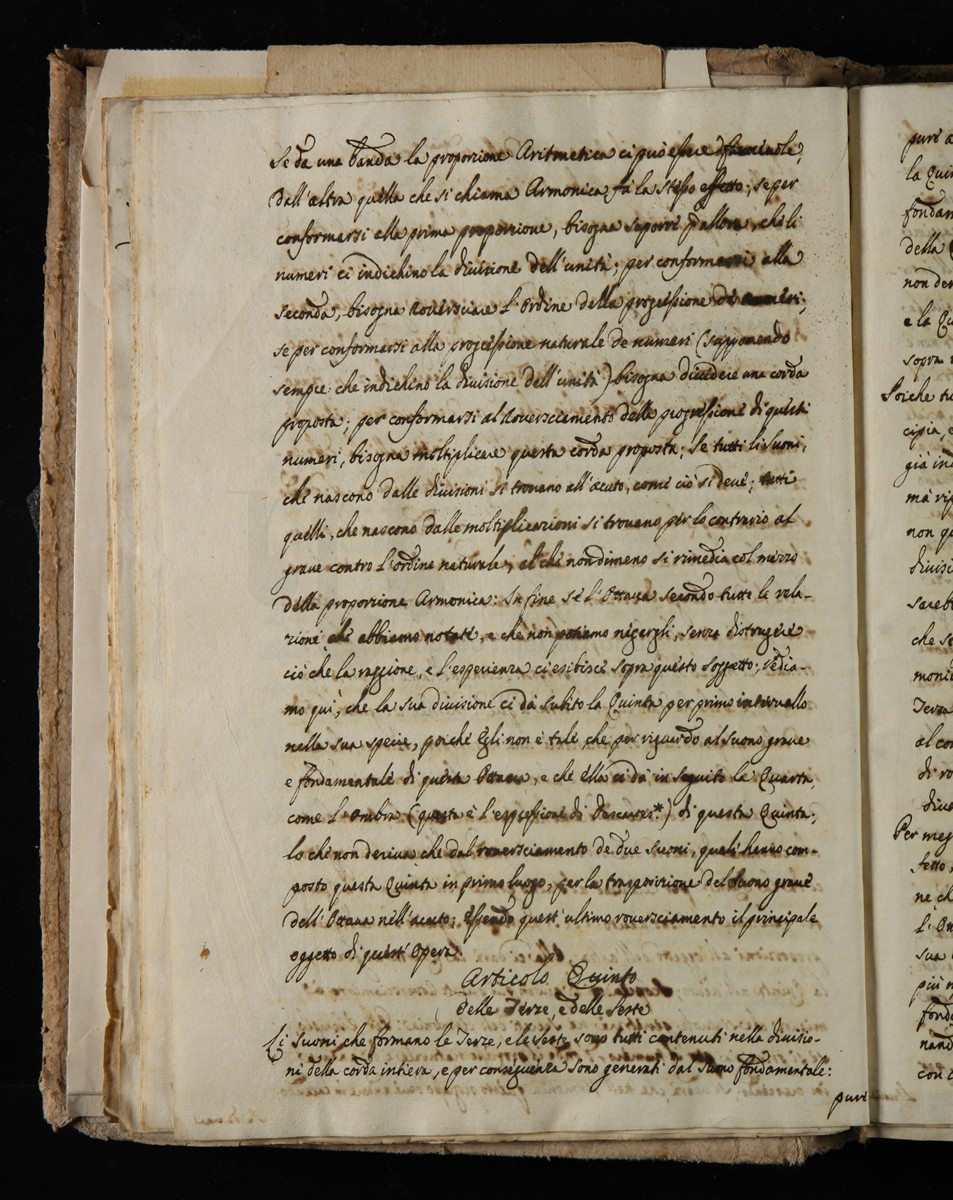 Se da una banda la proporzione Aritmetica ci può essere
dall'altra quella che si chiama Armonica fà lo stesso effetto; se per
conformarsi alla prima proporzione, bisogna suporre p allora, che li
numeri ci indichino la divisione dell'unità; per conformarsi alla
seconda, bisogna roversciare l'ordine della progressione de numeri;
se per conformarsi alla progressione naturale de numeri (supponendo
sempre che indichino la divisione dell'unità) bisogna dividere una corda
proposta; per conformarsi al roversciamento della progressione di questi
numeri, bisogna moltiplicare questa corda proposta; Se tutti li suoni,
che nascono dalle divisioni si trovano all'acuto, come ciò si deve; tutti
quelli, che nascono dalle moltiplicazioni si trovano per lo contrario al
grave contro l'ordine naturale, al che nondimeno si rimedia col mezzo
della proporzione Armonica: In fine se l'Ottava secondo tutte le rela-
zioni che abbiamo notate, e che non potiamo negargli, senza distrugere
ciò che la raggione, e l'esperienza ci esibisce sopra questo soggetto; vedia-
mo quì, che la sua divisione ci dà subito la Quinta per primo intervallo
nella sua specie, poiché Egli non è tale che per riguardo al suono grave
e fondamentale di questa Ottava, e che ella ci dà in seguito la Quarta,
come l'ombra (questa è l'espressione di Descartes*) di questa Quinta;
lo che non deriva che dal roversciamento de due suoni, quali hanno com-
posto questa Quinta in primo luogo, per la trasposizione del suono grave
dell'Ottava nell'acuto; essendo quest'ultimo roversciamento il principale
oggetto di quest'Opera.
Articolo Quinto
delle Terze, e delle Seste
Li suoni che formano le Terze, e le Seste sono tutti contenuti nella divisio-
ni della corda intiera, e per conseguenza sono generati dal suono fondamentale:
puré